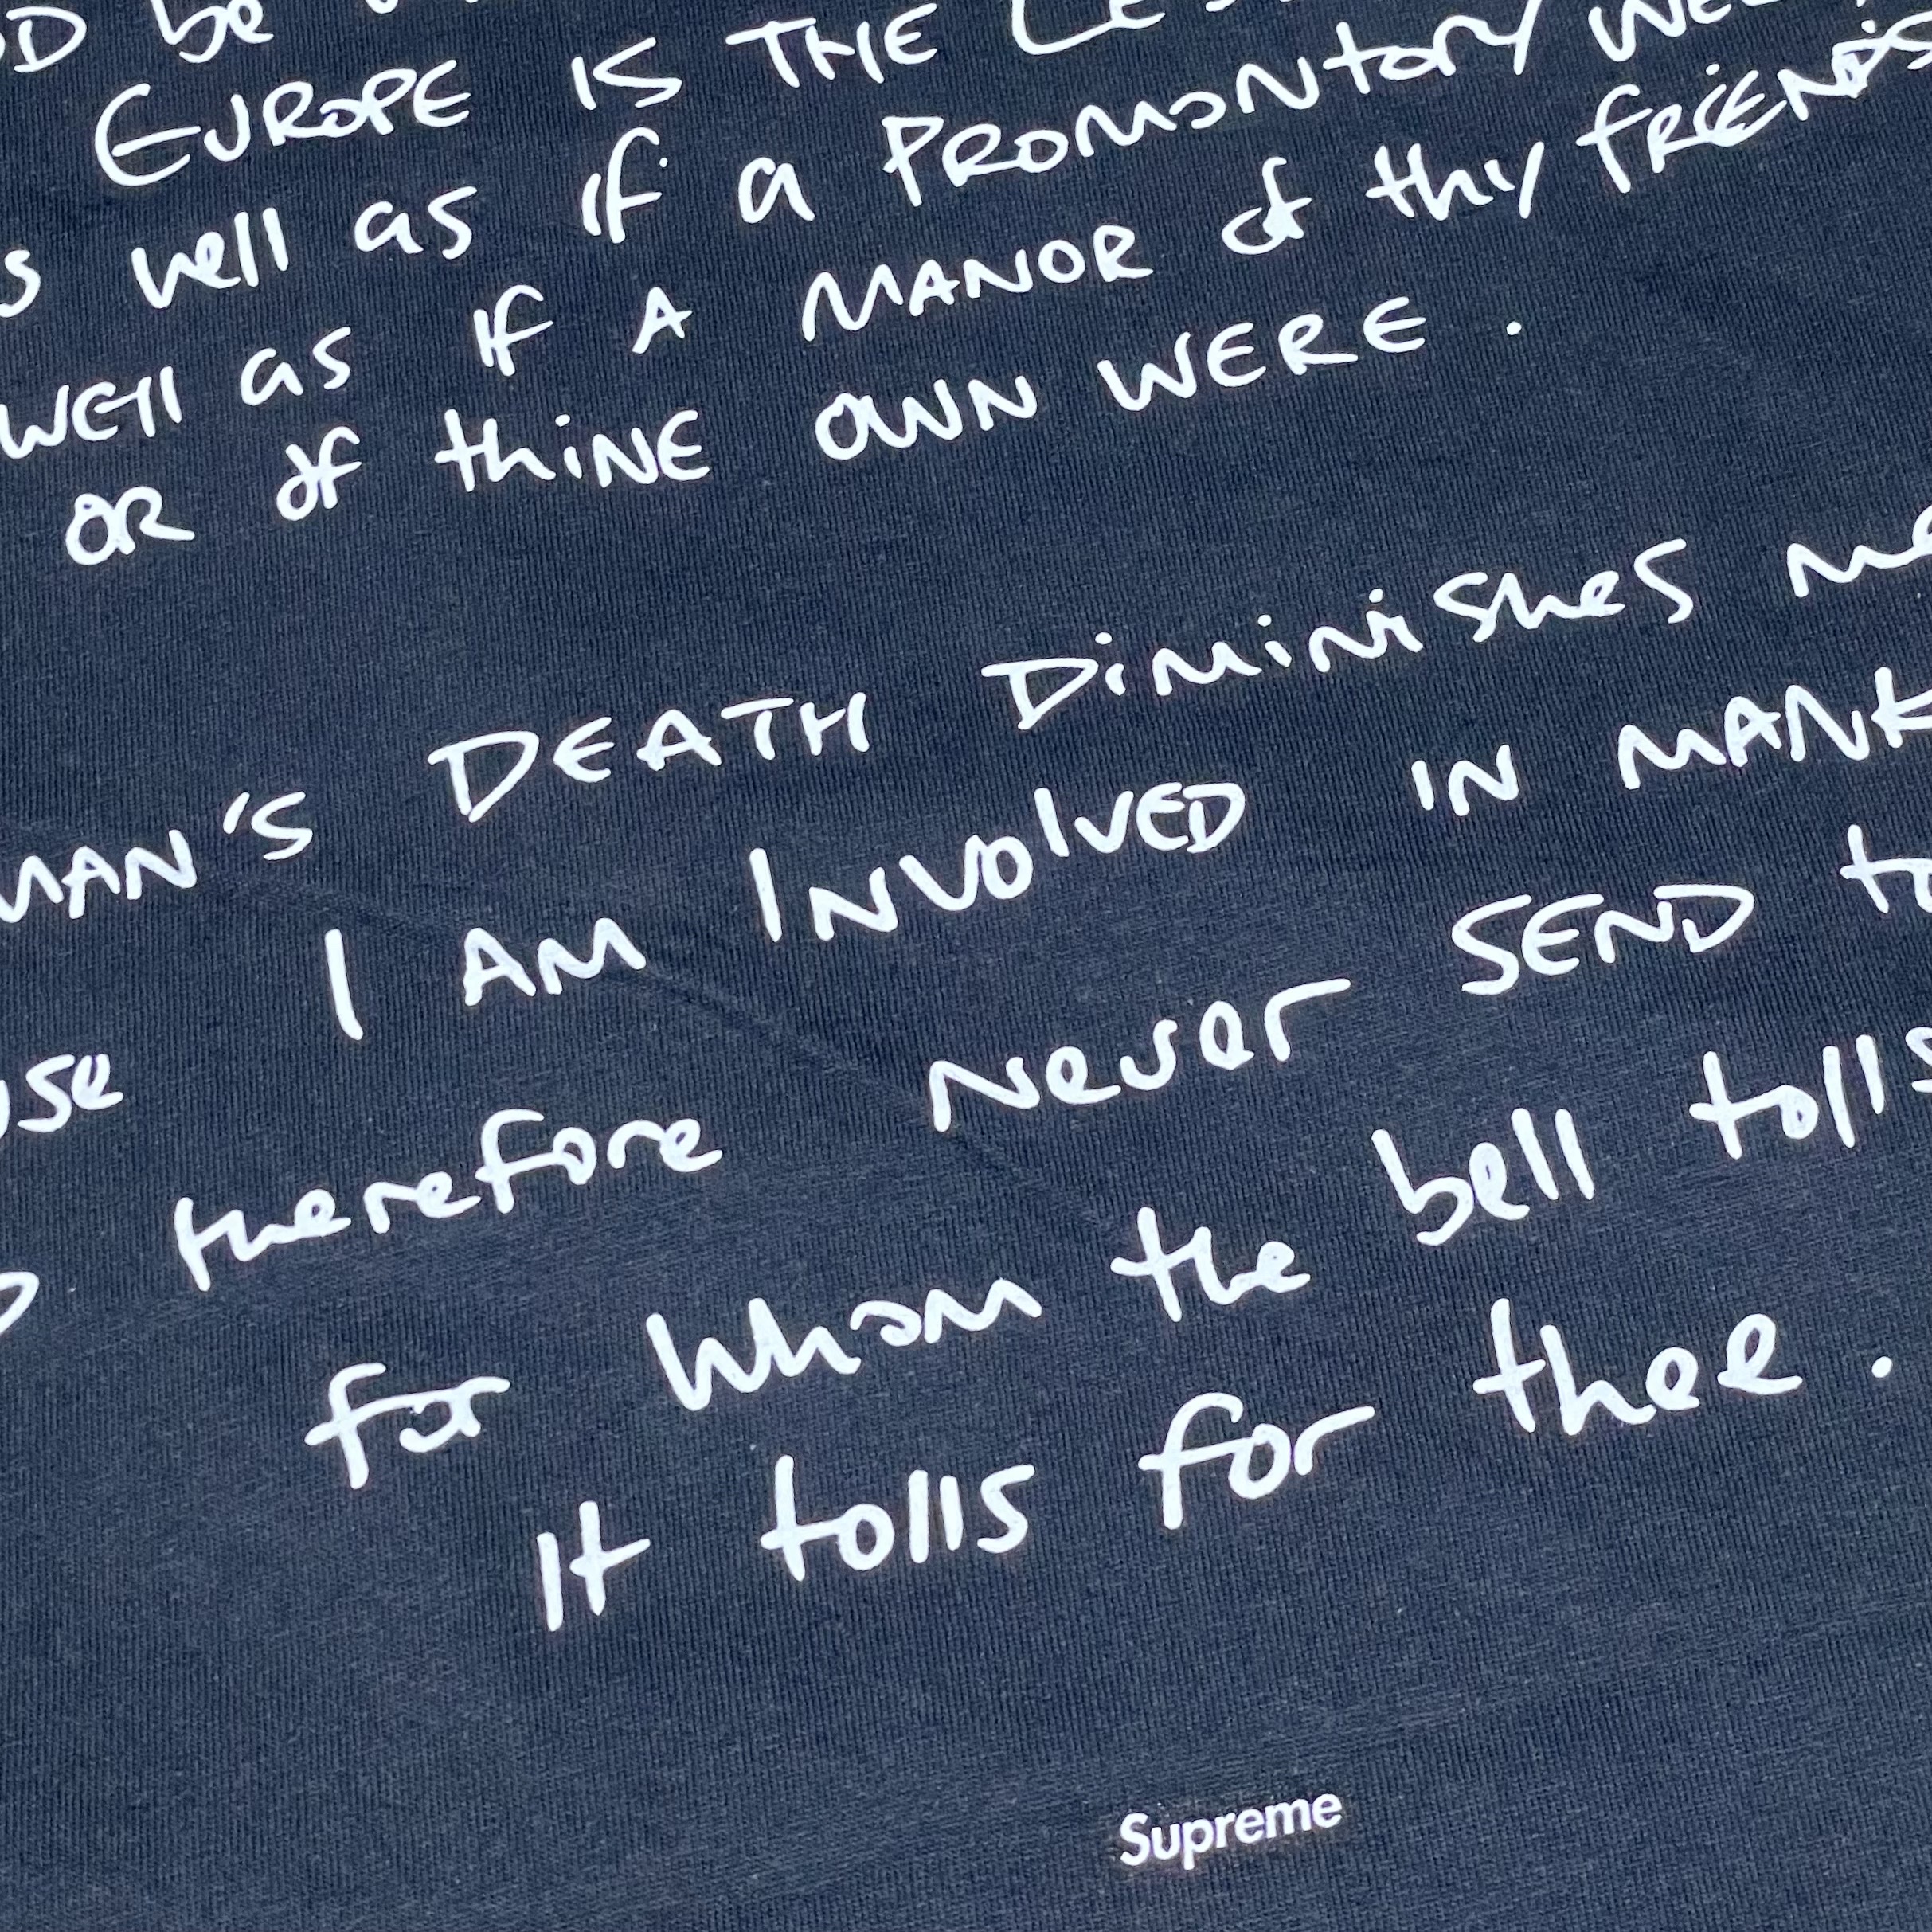 be
EUROPE IS THE
well as if a PROMONTORY
WEll as if A MANOR of thy FRIENDS
OR of thiNE OWN WERE.
MAN'S DEATH DiMiNiSheS me
I AM INVOlVED IN MANK
therefore Never SEND to
for whom the bell tolls
It tolls for thee.
Supreme